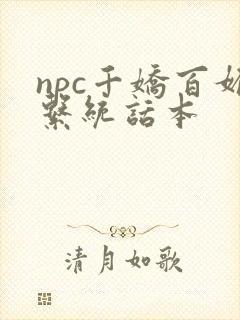 npc千嬌百媚
繫統話本
清月如歌